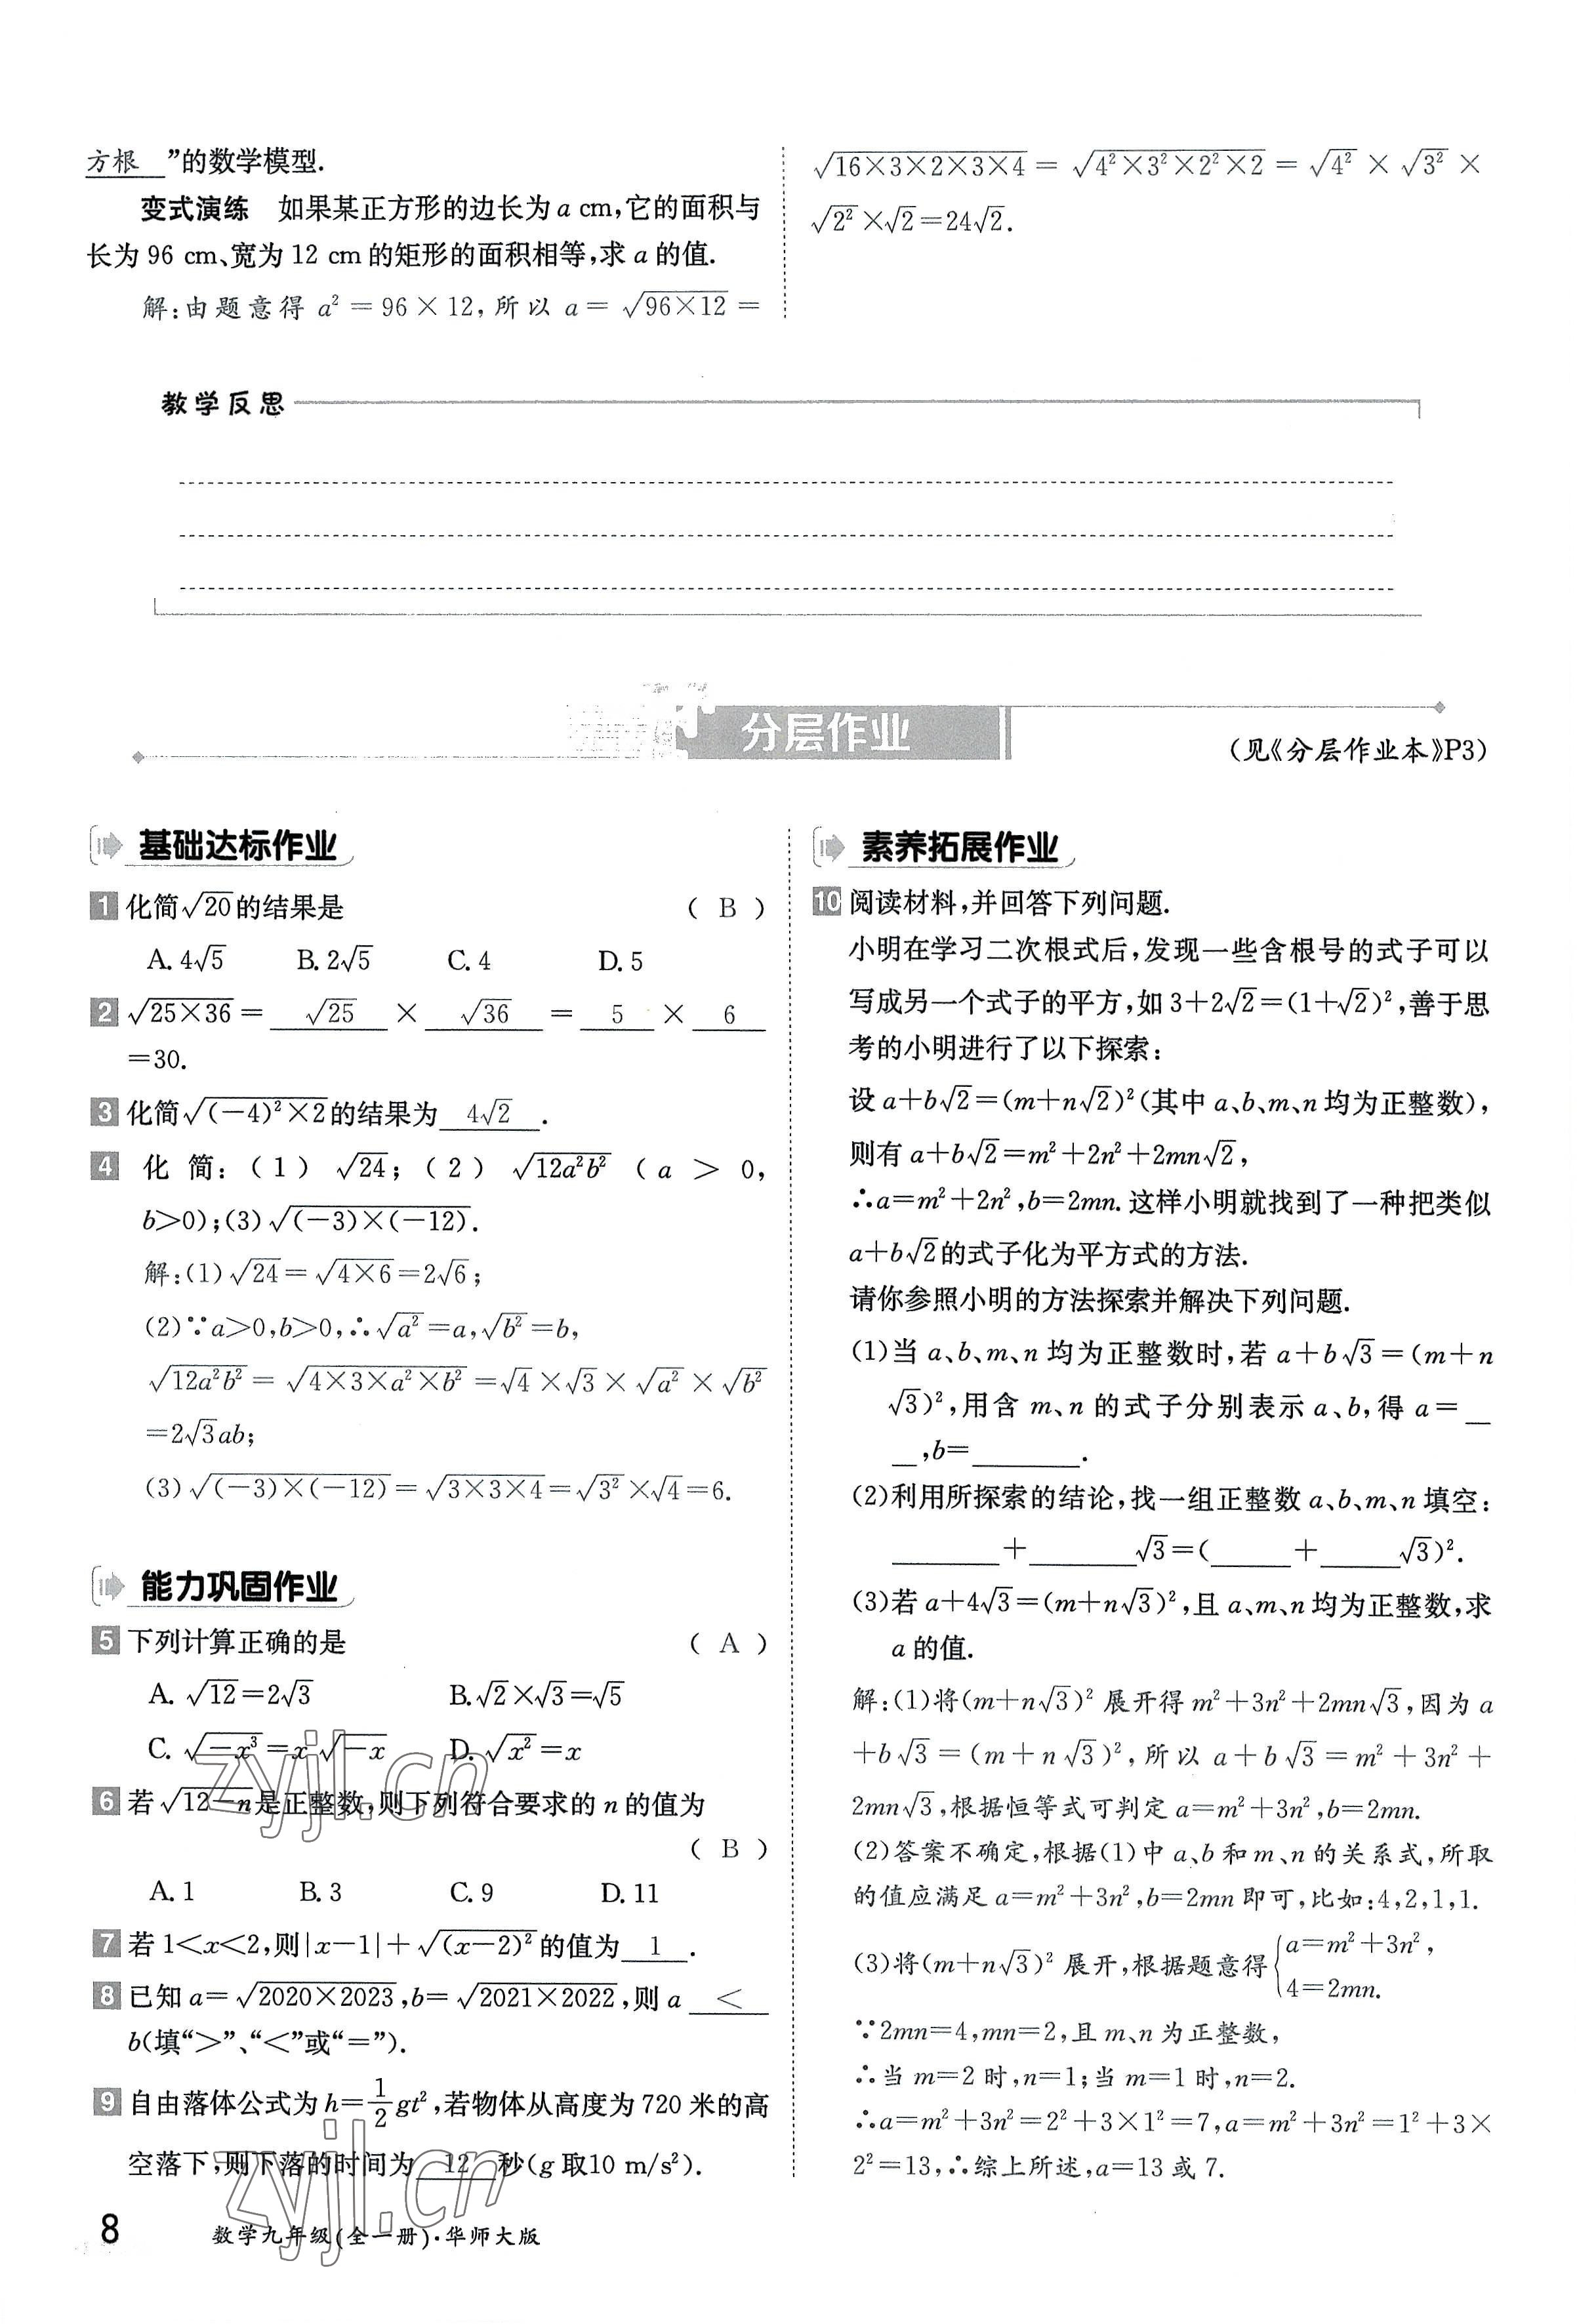 方根 ”的数学模型.
变式演练 如果某正方形的边长为 a cm,它的面积与
长为 96 cm、宽为 12 cm 的矩形的面积相等,求 a 的值.
解:由题意得 a²=96×12,所以 a=√(96×12)=
√(16×3×2×3×4)=√(4²×3²×2²×2)=√4²×√3²×
√2²×√2=24√2.
教学反思
分层作业
(见《分层作业本》P3)
基础达标作业
1 化简√20的结果是 ( B )
A. 4√5 B. 2√5 C. 4 D. 5
2 √(25×36)= √25 × √36 = 5 × 6
=30.
3 化简√((-4)²×2)的结果为 4√2 .
4 化简:(1)√24;(2)√(12a²b²)(a>0,
b>0);(3)√((-3)×(-12)).
解:(1)√24=√(4×6)=2√6;
(2)∵a>0,b>0,∴√a²=a,√b²=b,
√(12a²b²)=√(4×3×a²×b²)=√4×√3×√a²×√b²
=2√3ab;
(3)√((-3)×(-12))=√(3×3×4)=√3²×√4=6.
能力巩固作业
5 下列计算正确的是 ( A )
A. √12=2√3 B. √2×√3=√5
C. √(-x³)=x√(-x) D. √x²=x
6 若√(12-n)是正整数,则下列符合要求的 n 的值为
( B )
A. 1 B. 3 C. 9 D. 11
7 若 1<x<2,则|x-1|+√((x-2)²)的值为 1 .
8 已知 a=√(2020×2023),b=√(2021×2022),则 a <
b(填“>”、“<”或“=”).
9 自由落体公式为 h=1/2gt²,若物体从高度为 720 米的高
空落下,则下落的时间为 12 秒(g 取10 m/s²).
素养拓展作业
10 阅读材料,并回答下列问题.
小明在学习二次根式后,发现一些含根号的式子可以
写成另一个式子的平方,如 3+2√2=(1+√2)²,善于思
考的小明进行了以下探索:
设 a+b√2=(m+n√2)²(其中 a、b、m、n 均为正整数),
则有 a+b√2=m²+2n²+2mn√2,
∴a=m²+2n²,b=2mn. 这样小明就找到了一种把类似
a+b√2的式子化为平方式的方法.
请你参照小明的方法探索并解决下列问题.
(1)当 a、b、m、n 均为正整数时,若 a+b√3=(m+n
√3)²,用含 m、n 的式子分别表示 a、b,得 a=_
_,b=____.
(2)利用所探索的结论,找一组正整数 a、b、m、n 填空:
____+____√3=(___+___√3)².
(3)若 a+4√3=(m+n√3)²,且 a、m、n 均为正整数,求
a 的值.
解:(1)将(m+n√3)² 展开得 m²+3n²+2mn√3,因为 a
+b√3=(m+n√3)²,所以 a+b√3=m²+3n²+
2mn√3,根据恒等式可判定 a=m²+3n²,b=2mn.
(2)答案不确定,根据(1)中 a、b 和 m、n 的关系式,所取
的值应满足 a=m²+3n²,b=2mn 即可,比如:4,2,1,1.
(3)将(m+n√3)² 展开,根据题意得{a=m²+3n²,
4=2mn.
∵2mn=4,mn=2,且 m、n 为正整数,
∴当 m=2 时,n=1;当 m=1 时,n=2.
∴a=m²+3n²=2²+3×1²=7,a=m²+3n²=1²+3×
2²=13,∴综上所述,a=13 或 7.
zyjl.cn
zyjl.cn
8 数学九年级(全一册)·华师大版